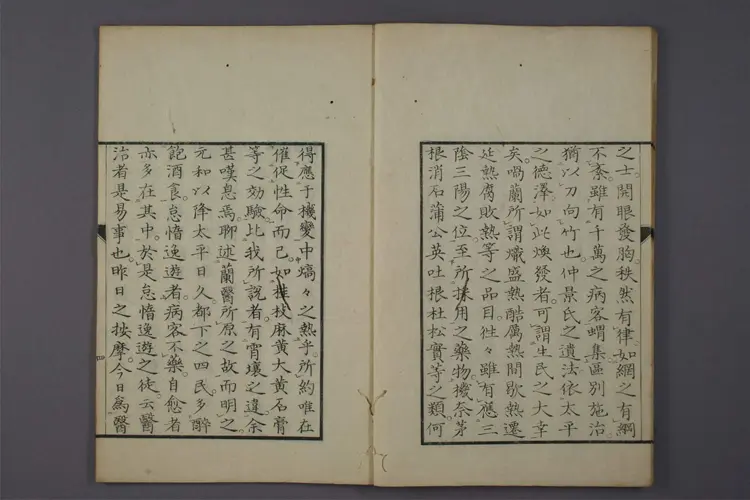 之士開眼發胸秩然有律如綱之有綱
不紊雖有千萬之病客蝟集區別施治
猶以刀向竹也仲景氏之遺法依太平
之德澤如此煥發者可謂生民之大幸
矣喎蘭所謂熾盛熱酷厲熱間歇熱遷
延熱腐敗熱等之品目徃々雖有應三
陰三陽之位至所採用之藥物機奈茅
根消石蒲公英吐根杜松實等之類何
得應于機變中熇々之熱乎所約唯在
催促性命而已如桂枝麻黃大黃石膏
等之効驗比我所說者有霄壤之違余
甚嘆息焉聊述蘭醫所原之故而明之
元和以降太平日久都下之四民多醉
飽酒食怠惰逸遊者病客不藥自愈者
亦多在其中於是怠惰逸遊之徒云醫
治者是易事也昨日之按摩今日為醫